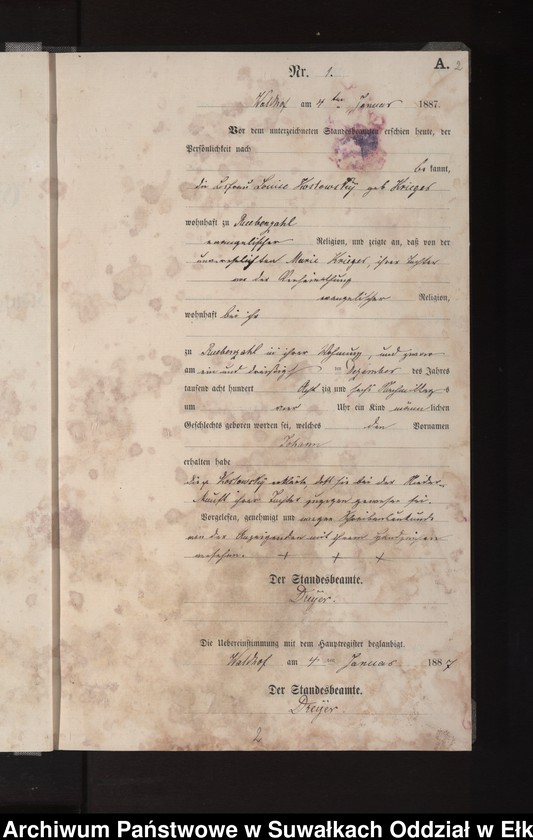 A. 2
Nr. 1.
Waldhof am 4ten Januar 1887.
Vor dem unterzeichneten Standesbeamten erschien heute, der
Persönlichkeit nach
bekannt,
die Losfrau Louise Koslowsky geb. Krieger
wohnhaft zu Ruebenzahl
evangelischer Religion, und zeigte an, daß von der
unverehelichten Marie Krieger, ihrer Tochter
vor der Verheirathung
evangelischer Religion,
wohnhaft bei ihr
zu Ruebenzahl in ihrer Wohnung, und zwar
am ein und dreißigst Dezember des Jahres
tausend acht hundert Achtzig und sechs Nachmittags
um vier Uhr ein Kind männlichen
Geschlechts geboren worden sei, welches den Vornamen
Johann
erhalten habe
die p. Koslowsky erklärte daß sie bei der Nieder-
kunft ihrer Tochter zugegen gewesen sei.
Vorgelesen, genehmigt und wegen Schreibensunkunde
von der Anzeigenden mit ihrem Handzeichen
versehen. + + +
Der Standesbeamte.
Dreyer.
Die Uebereinstimmung mit dem Hauptregister beglaubigt.
Waldhof am 4ten Januar 1887
Der Standesbeamte.
Dreyer.
2
Archiwum Państwowe w Suwałkach Oddział w Ełk